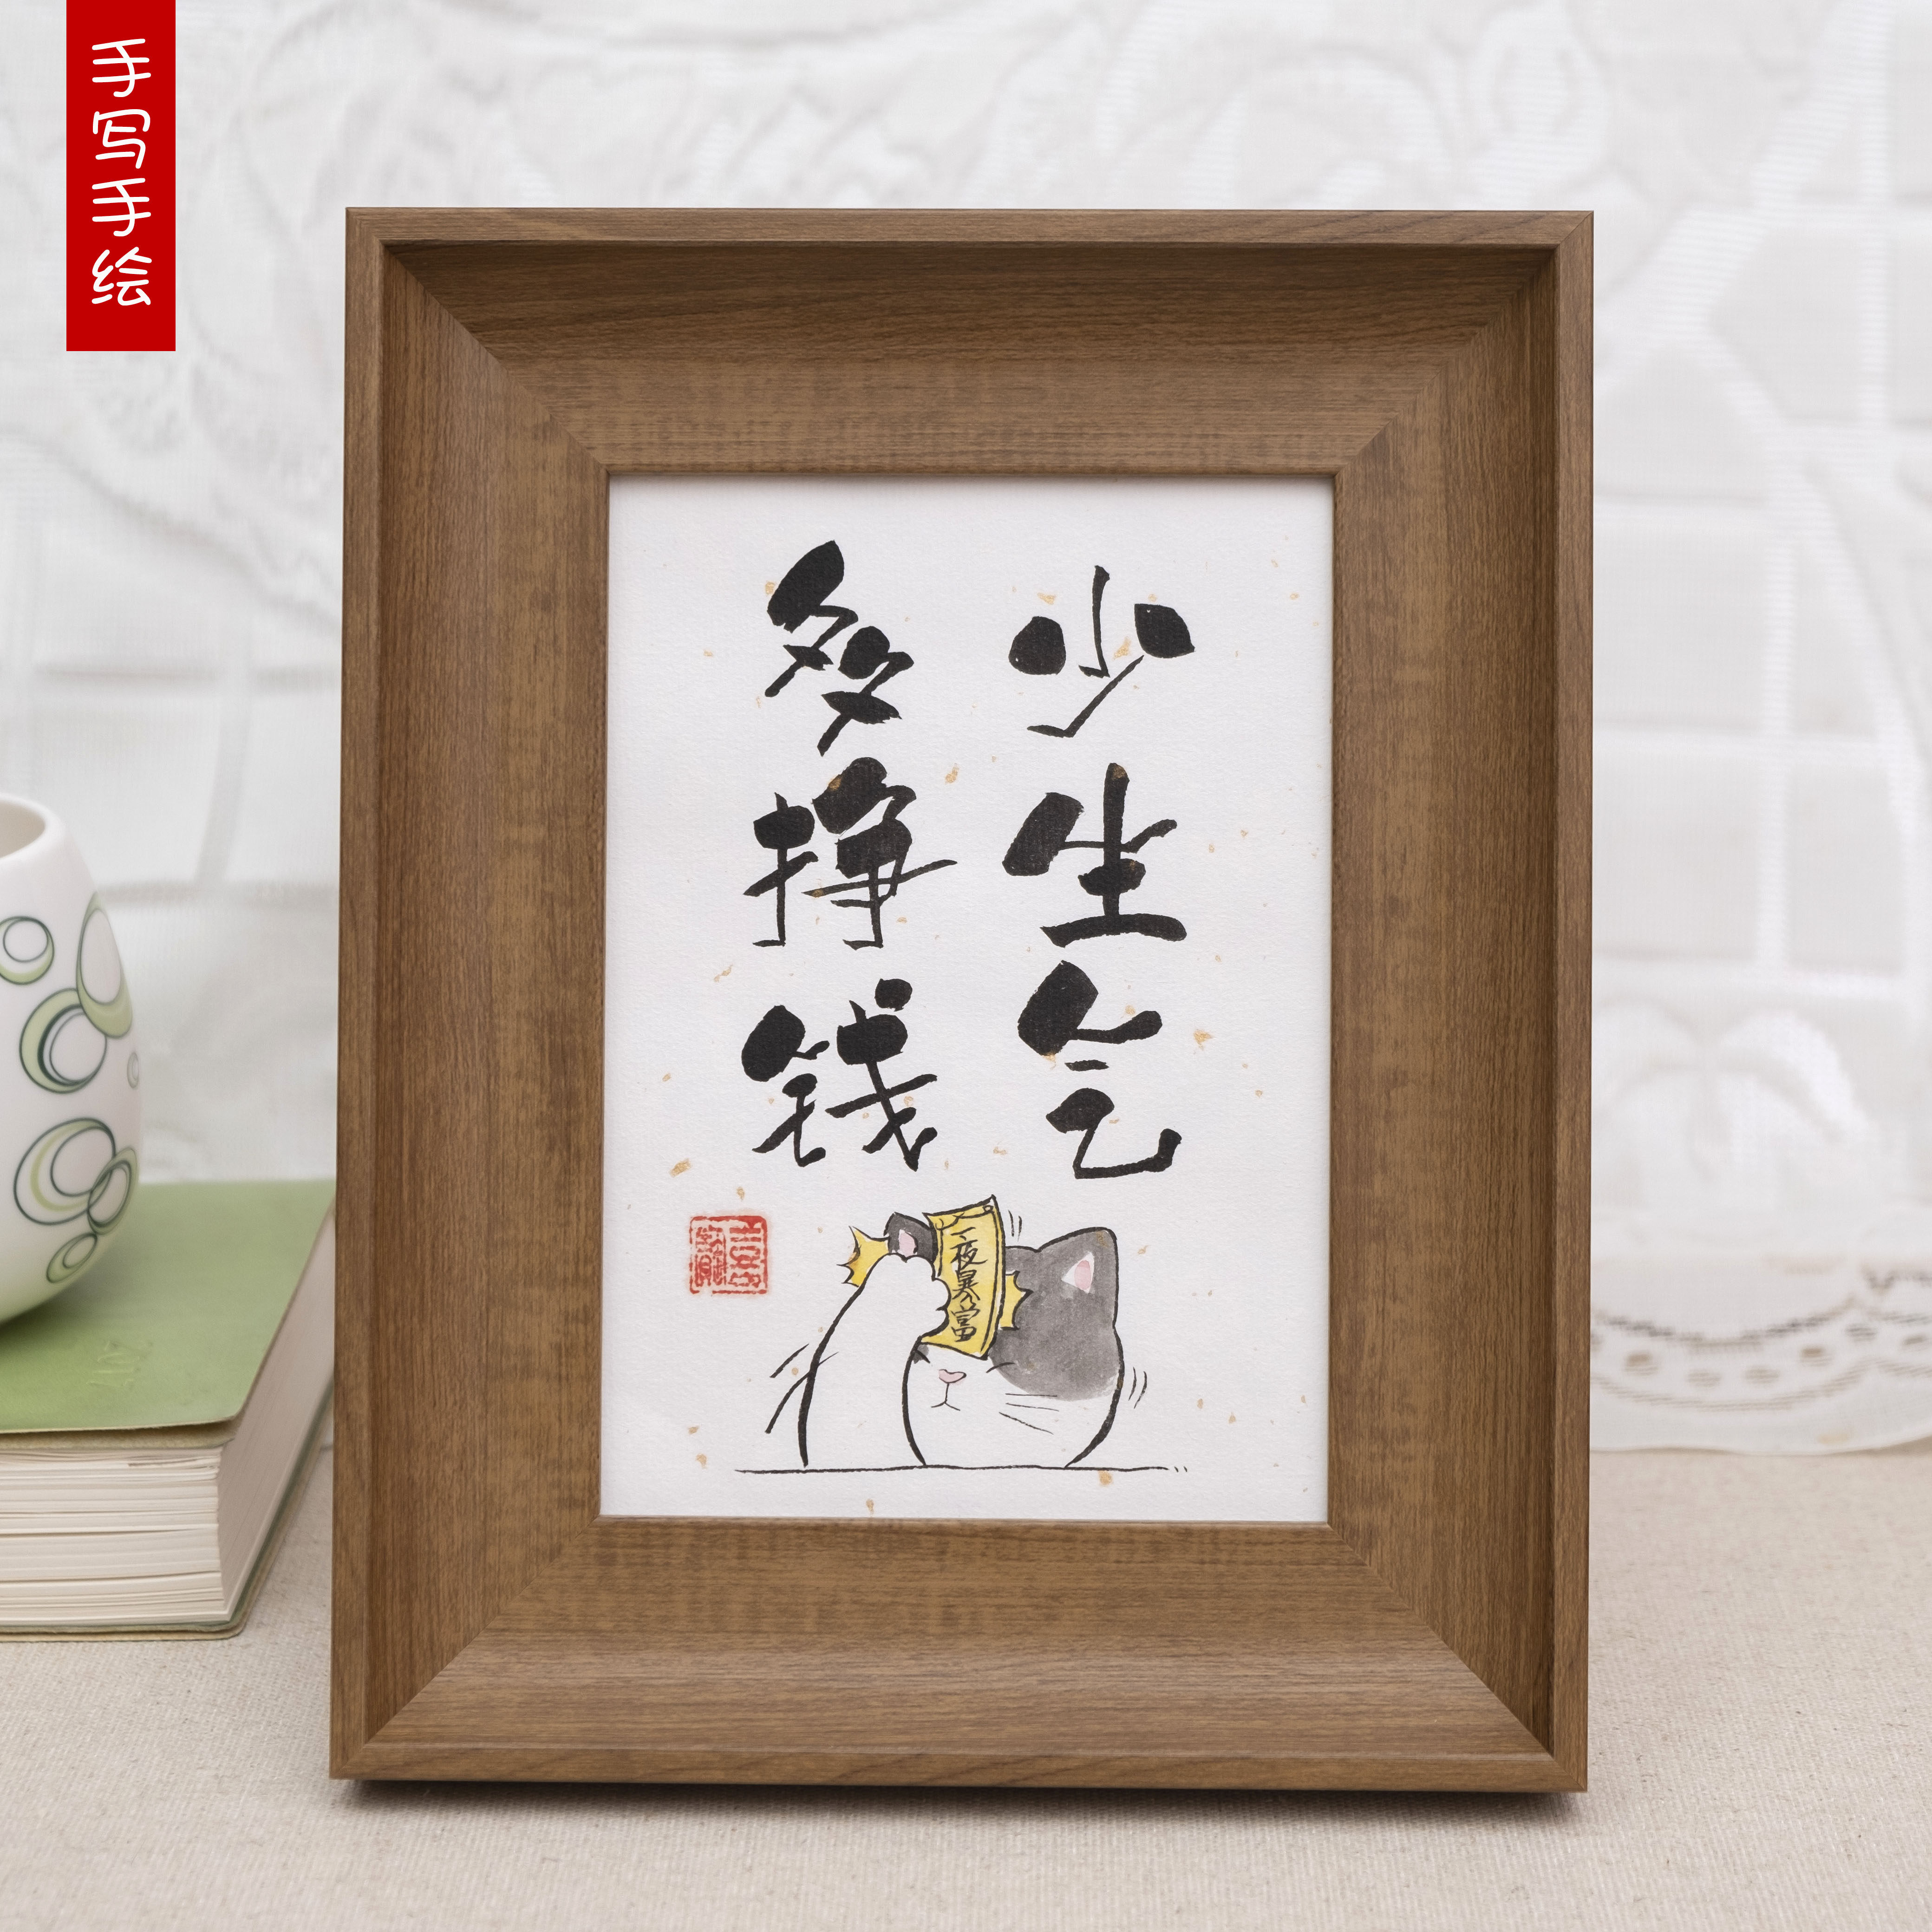 手写手绘
少生气
多挣钱
一夜暴富